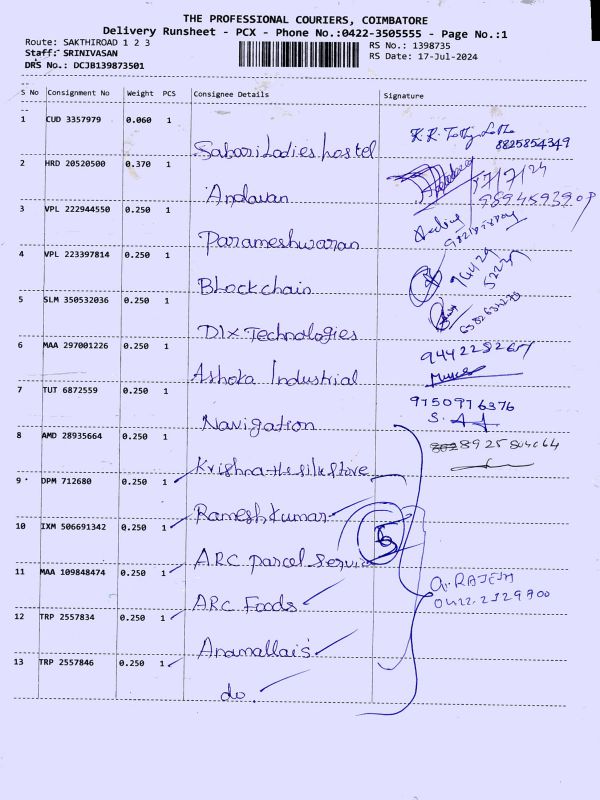 THE PROFESSIONAL COURIERS, COIMBATORE
Delivery Runsheet - PCX - Phone No.:0422-3505555 - Page No.:1
Route: SAKTHIROAD 1 2 3
Staff: SRINIVASAN
DRS No.: DCJB139873501
RS No.: 1398735
RS Date: 17-Jul-2024
S No Consignment No Weight PCS Consignee Details Signature
1 CUD 3357979 0.060 1
Sabari Ladies hostel
8825854349
2 HRD 20520500 0.370 1
Andavan
17/7/24
3 VPL 222944550 0.250 1
Parameshwaran
4 VPL 223397814 0.250 1
Block chain
5 SLM 350532036 0.250 1
DIX Technologies
6 MAA 297001226 0.250 1
Ashoka Industrial
7 TUT 6872559 0.250 1
9750976376
Navigation
8 AMD 28935664 0.250 1
Krishna the silk store
9 DPM 712680 0.250 1
Rameshkumar
10 IXM 506691342 0.250 1
ARC parcel service
11 MAA 109848474 0.250 1
G. RAJESH
ARC Foods
12 TRP 2557834 0.250 1
Anamallai's
13 TRP 2557846 0.250 1
do.